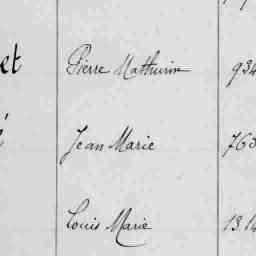 et Pierre Mathurin 934
é Jean Marie 763
Louis Marie 1314